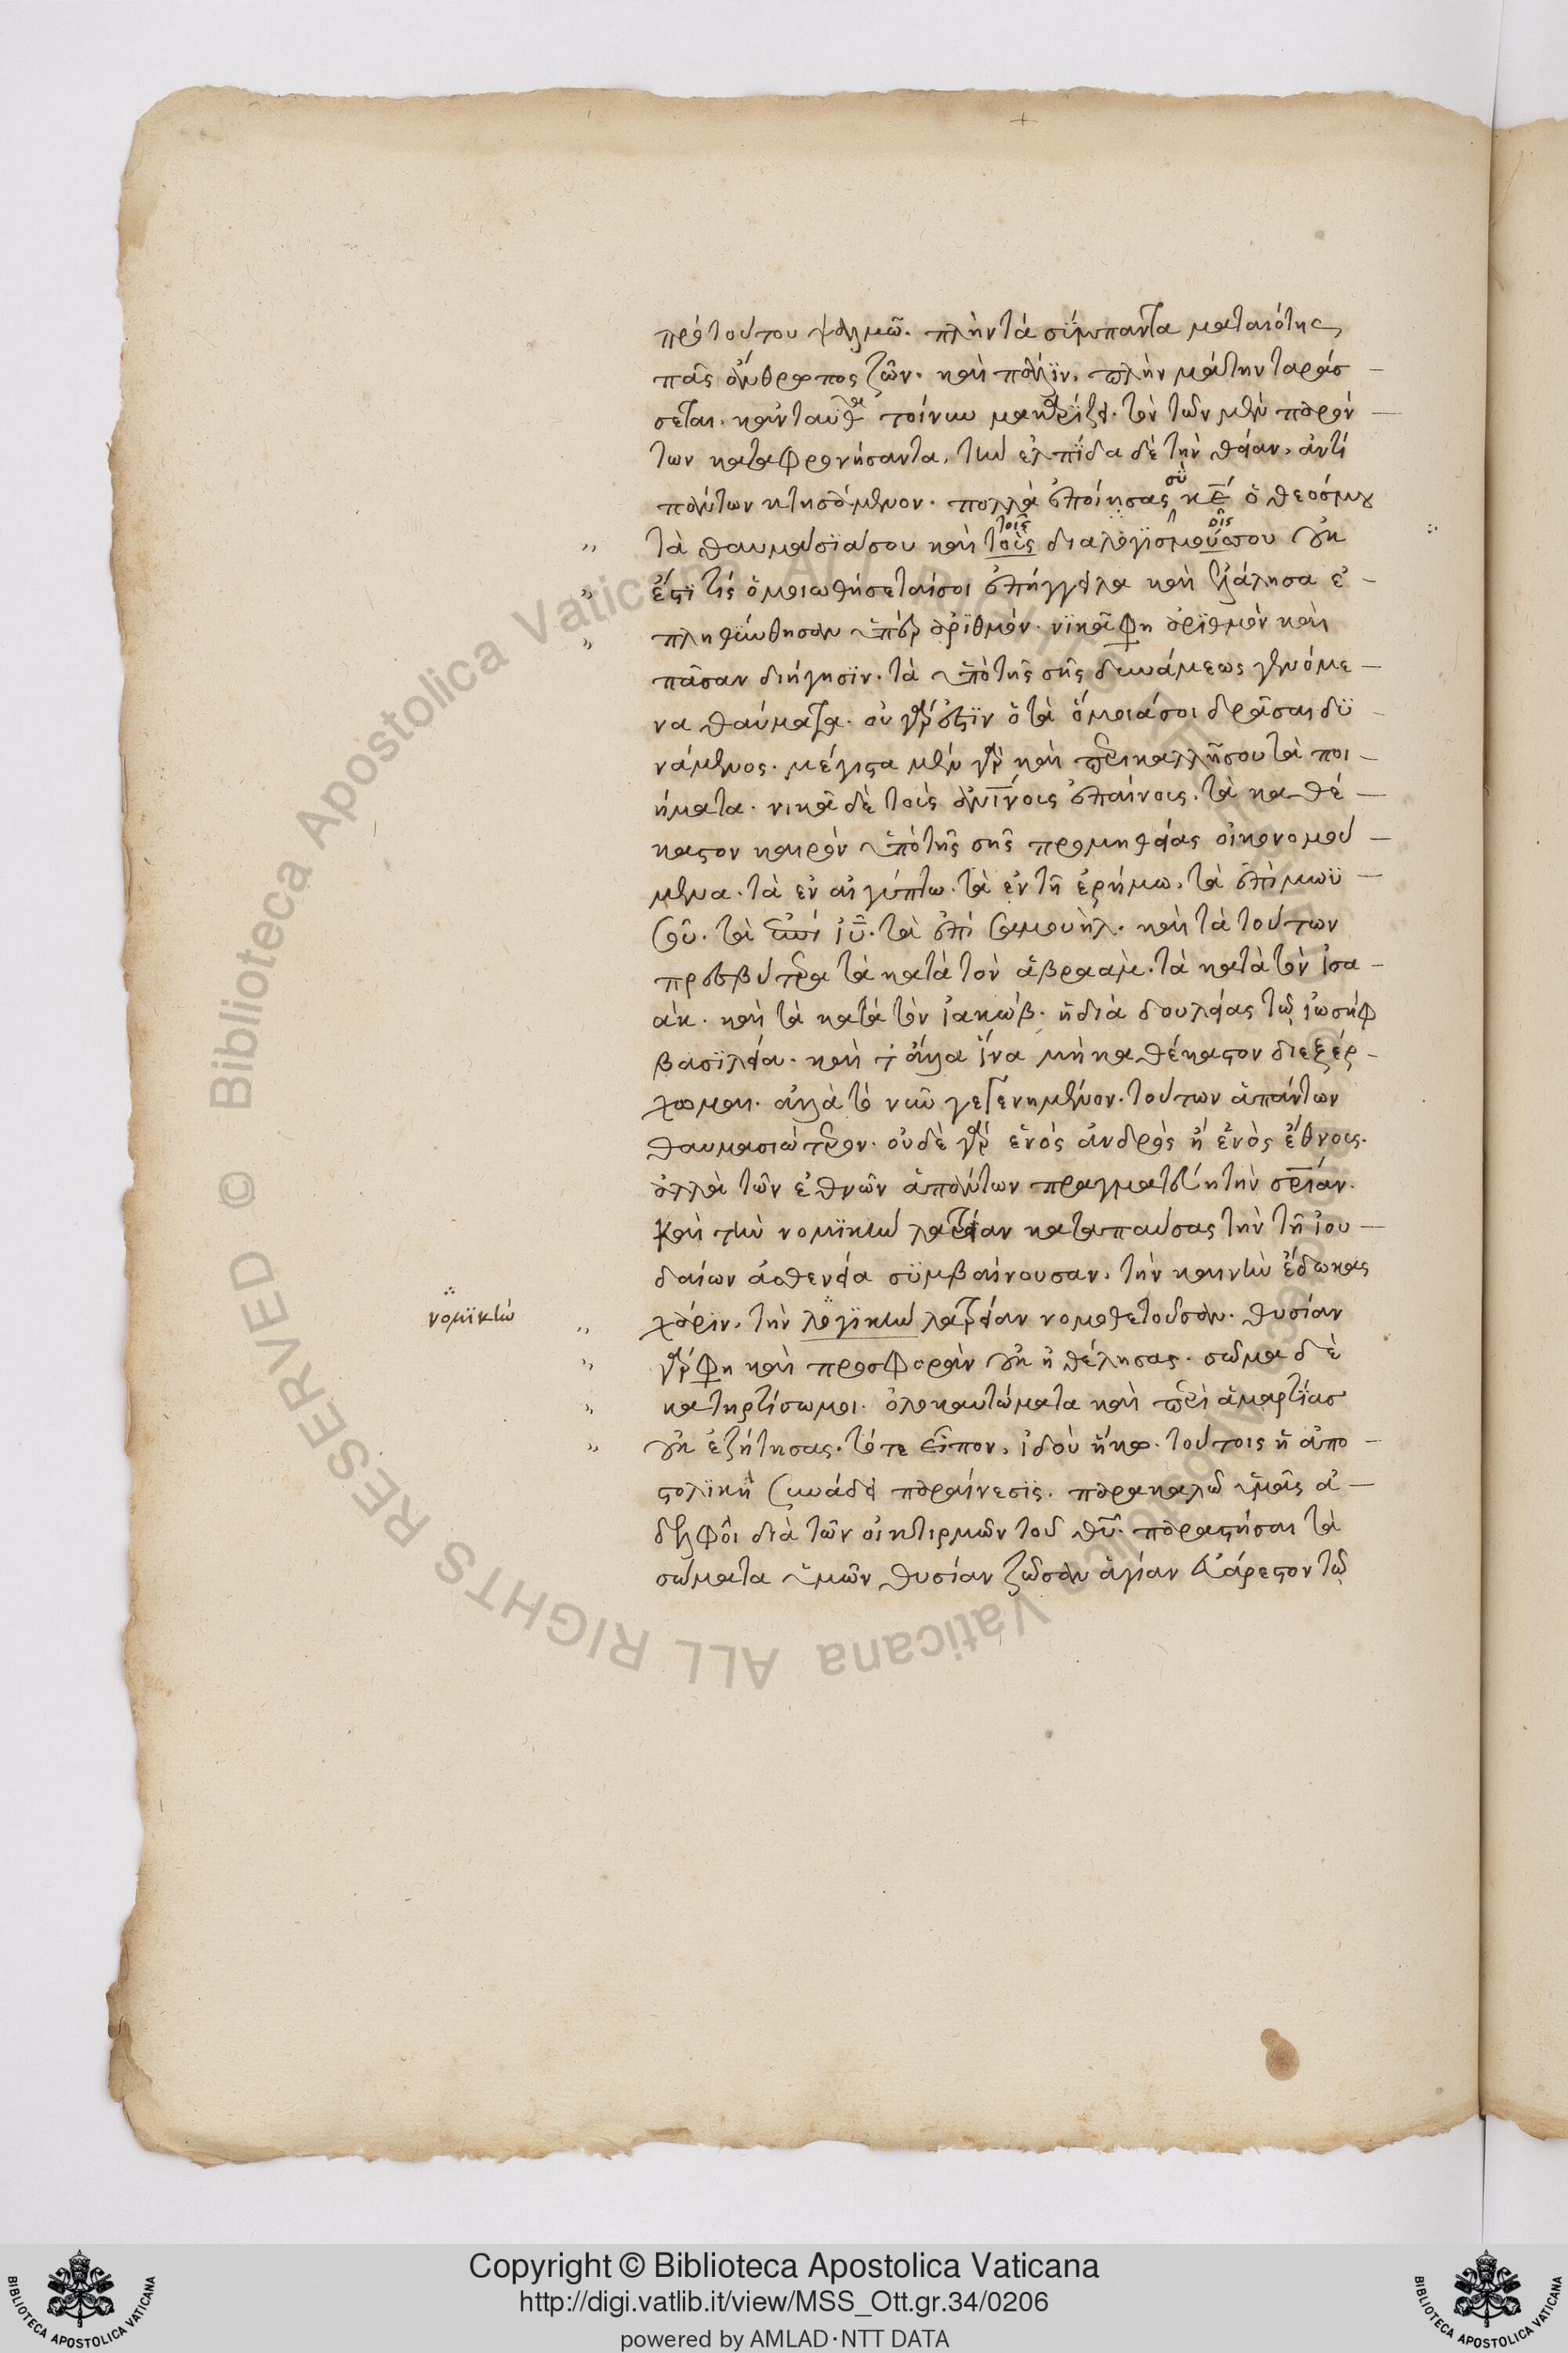 πρὸ τούτου ψαλμῶ. πλὴν τὰ σύμπαντα ματαιότης
πᾶς ἄνθρωπος ζῶν. καὶ πάλιν, πλὴν μάτην ταράσ
σεται. κἀνταῦθα τοίνυν μακαρίζει. τὸν τῶν μὲν παρόν
των καταφρονήσαντα, τὴν ἐλπίδα δὲ τὴν θείαν, ἀντὶ
πάντων κτησάμενον. πολλὰ ἐποίησας σὺ κε ὁ θεόσμου
τὰ θαυμάσϊά σου καὶ τοῖς τοῖς διαλογισμούσσου οῖς οὐκ
ἔστι τίς ὁμοιωθήσεταίσοι ἀπήγγειλα καὶ ἐλάλησα ἐ
πληθύνθησαν ὑπὲρ ἀριθμόν. νϊκᾶ φη ἀριθμὸν καὶ
πᾶσαν διήγησϊν. τὰ ὑπὸ τῆς σῆς δυνάμεως γινόμε
να θαύματα. οὐ γάρ ἐστϊν ὁ τὰ ὅμοιάσοι δρᾶσαι δϋ
νάμενος. μέγιστα μὲν γὰρ καὶ περικαλλῆσου τὰ ποι
ήματα. νικᾶ δὲ τοὺς ἀνίνοις ἐπαίνοις. τὰ καθέ
καστον καιρὸν ὑπὸ τῆς σῆς προμηθείας οἰκονομού
μενα. τὰ ἐν αἰγύπτω. τὰ ἐν τῆ ἐρήμω, τὰ ἐπὶ μωϋ
σοῦ. τὰ ἐπὶ ἰῦ. τὰ ἐπὶ σαμουὴλ. καὶ τὰ τούτων
πρεσβύτερα τὰ κατὰ τὸν ἀβραάμ. τὰ κατὰ τὸν ἰσα
άκ. καὶ τὰ κατὰ τὸν ἰακώβ. ἡ διὰ δουλείας τῶ ἰωσὴφ
βασϊλεία. καὶ τἄλλα ἵνα μὴ καθέκαστον διεξέρ
χωμαι. ἀλλὰ τὸ νῦν γεγενημένον. τούτων ἁπάντων
θαυμασιώτερον. οὐδὲ γάρ ἑνὸς ἀνδρὸς ἢ ἑνὸς ἔθνους.
ἀλλὰ τῶν ἐθνῶν ἁπάντων πραγματεύη τὴν σριάν.
καὶ τὴν νομϊκὴν λατρείαν καταπαύσας τὴν τῆ ἰου
δαίων ἀσθενεία σϋμβαίνουσαν, τὴν καινὴν ἔδωκας
νομϊκὴν
χάριν, τὴν λογϊκὴν λατρείαν νομοθετοῦσαν. θυσίαν
γάρ φη καὶ προσφορὰν οὐκ ἠθέλησας. σῶμα δὲ
κατηρτίσωμοι. ὁλοκαυτώματα καὶ περὶ ἁμαρτίασ
οὐκ ἐζήτησας. τότε εἶπον, ἰδοὺ ἥκω. τούτοις ἡ ἀπο
στολϊκὴ συνάδει παραίνεσϊς. παρακαλῶ ὑμᾶς ἀ
δελφοὶ διὰ τῶν οἰκτιρμῶν τοῦ θῦ. παραστῆσαι τὰ
σώματα ὑμῶν θυσίαν ζῶσαν ἁγίαν εὐάρεστον τῶ
Copyright © Biblioteca Apostolica Vaticana
http://digi.vatlib.it/view/MSS_Ott.gr.34/0206
powered by AMLAD·NTT DATA